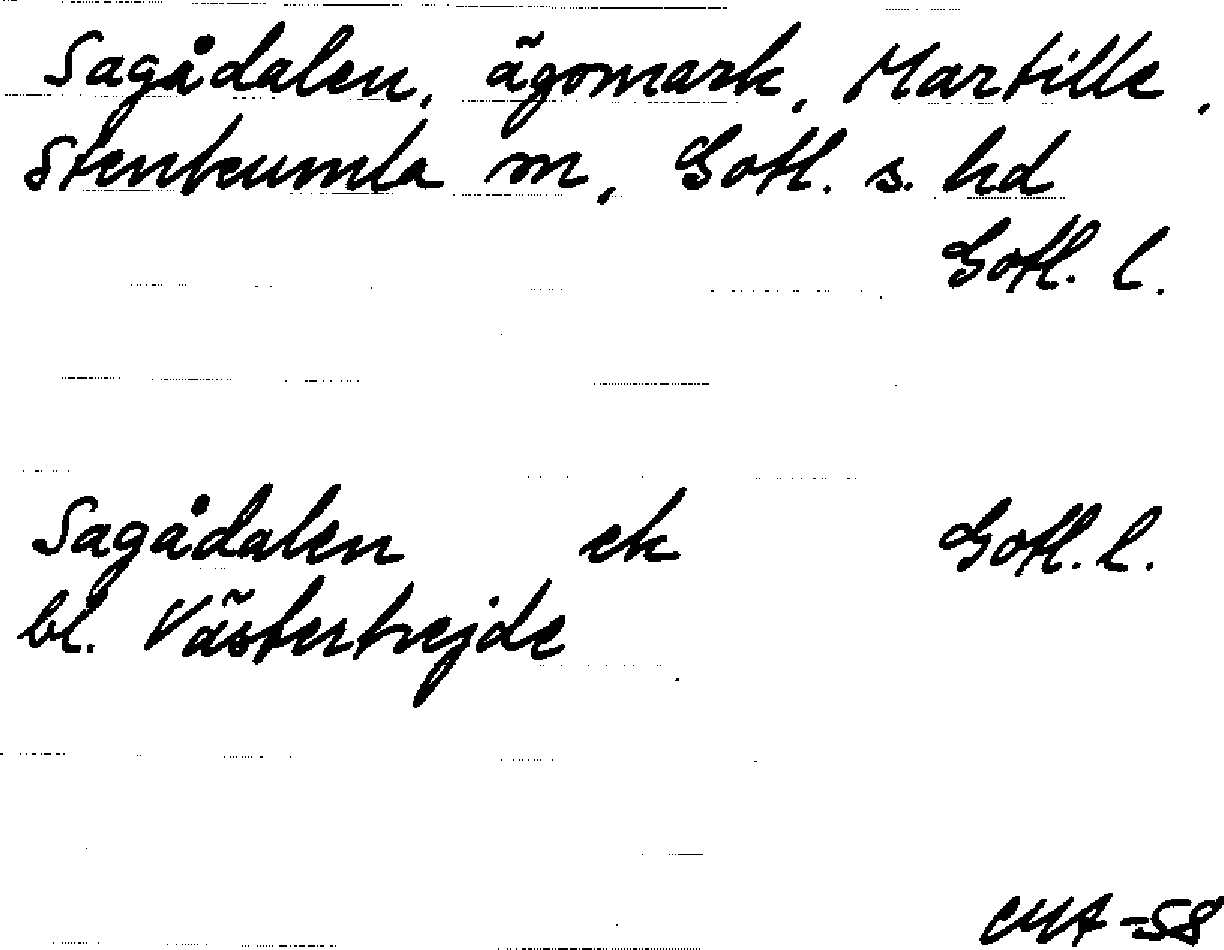 Sagådalen, ägomark, Martille,
Stenkumla sn, Gotl. s. hd
Gotl. l.
Sagådalen ek Gotl. l.
bl. Västerhejde
-58